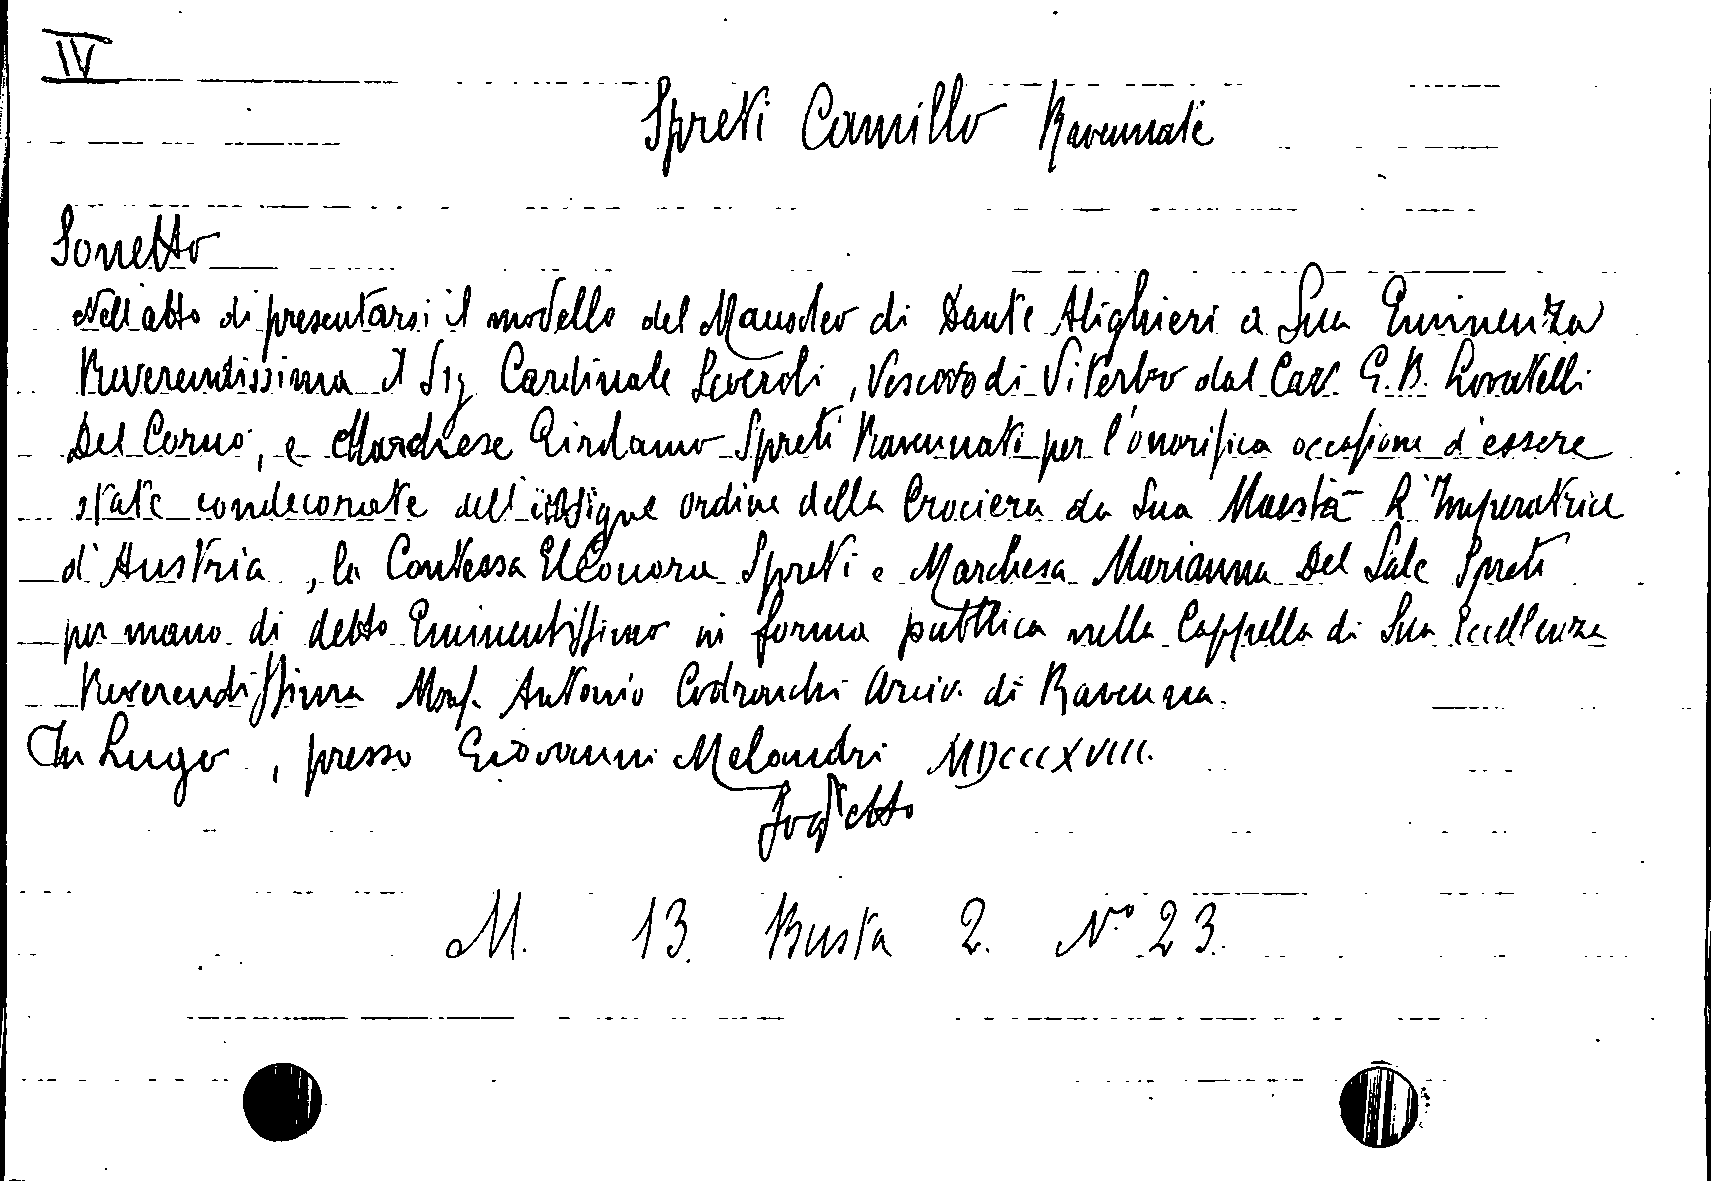 IV
Spreti Camillo Ravennate
Sonetto
Nell'atto di presentarsi il modello del Mausoleo di Dante Alighieri a Sua Eminenza
Reverendissima il Sig Cardinale Severoli, Vescovo di Viterbo dal Cav. G. B. Lovatelli
Del Corno, e Marchese Girolamo Spreti Ravennati per l'onorifica occasione d'essere
state condecorate dell'insigne ordine della Crociera da Sua Maestà L'Imperatrice
d'Austria, la Contessa Eleonora Spreti e Marchesa Marianna Del Sale Spreti
per mano di detto Eminentissimo in forma pubblica nella Cappella di Sua Eccellenza
Reverendissima Mons. Antonio Codronchi Arciv. di Ravenna.
In Lugo, presso Giovanni Melandri MDCCCXVIII.
Foglietto
M. 13. Busta 2. N.º 23.